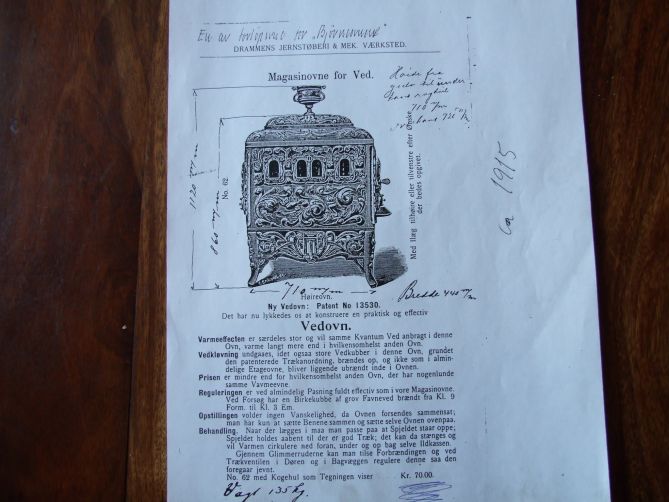 En av "Bjørnerine"
DRAMMENS JERNSTØBERI & MEK. VÆRKSTED.
Magasinovne for Ved.
Høide fra
gulv til under
710 m/m
720 m/m
1120 m/m
No. 62
860 m/m
Med Ilæg tilhøire eller tilvenstre efter Ønske,
der bedes opgivet.
ca 1915
710 m/m
Bredde 440 m/m
Høireovn.
Ny Vedovn: Patent No 13530.
Det har nu lykkedes os at konstruere en praktisk og effectiv
Vedovn.
Varmeeffecten er særdeles stor og vil samme Kvantum Ved anbragt i denne
Ovn, varme langt mere end i hvilkensomhelst anden Ovn.
Vedkløvning undgaaes, idet ogsaa store Vedkubber i denne Ovn, grundet
den patenterede Trækanordning, brændes op, og ikke som i almin-
delige Etageovne, bliver liggende ubrændt inde i Ovnen.
Prisen er mindre end for hvilkensomhelst anden Ovn, der har nogenlunde
samme Varmeevne.
Reguleringen er ved almindelig Pasning fuldt effectiv som i vore Magasinovne.
Ved Forsøg har en Birkekubbe af grov Favneved brændt fra Kl. 9
Form. til Kl. 3 Em.
Opstillingen volder ingen Vanskelighed, da Ovnen forsendes sammensat;
man har kun at sætte Benene sammen og sætte selve Ovnen ovenpaa.
Behandling. Naar der lægges i maa man passe paa at Spjeldet staar oppe;
Spjeldet holdes aabent til der er god Træk; det kan da stænges og
vil Varmen cirkulere ned foran, under og op bag selve Ildkassen.
Gjennem Glimmerruderne kan man tilse Forbrændingen og ved
Trækventilen i Døren og i Bagvæggen regulere denne saa den
foregaar jevnt.
No. 62 med Kogehul som Tegningen viser Kr. 70.00.
Vægt 135 kg.